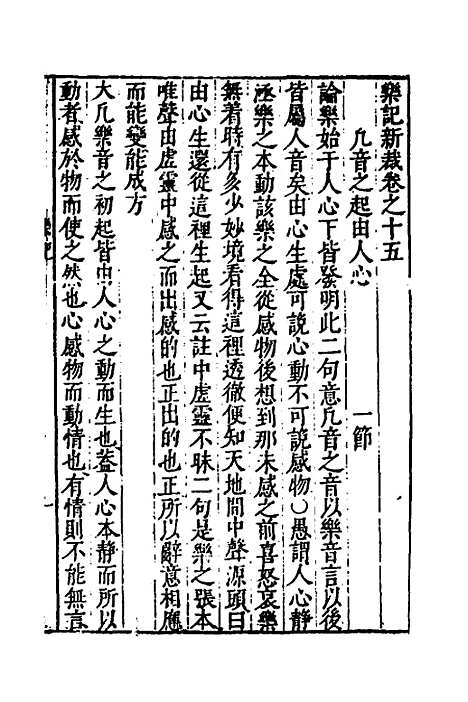 樂記新裁卷之十五
凡音之起由人心　一節
論樂始于人心下皆發明此二句意凡音之音以樂音言以後
皆屬人音矣由心生處可說心動不可說感物○愚謂人心靜
涵樂之本動該樂之全從感物後想到那未感之前喜怒哀樂
無着時有多少妙境看得這裡透徹便知天地間中聲源頭曰
由心生還從這裡生起又云註中虛靈不昧二句是樂之張本
唯聲由虛靈中感之而出感的也正出的也正所以辭意相應
而能變能成方
大凡樂音之初起皆由人心之動而生也蓋人心本靜而所以
動者感於物而使之然也心感物而動情也有情則不能無言